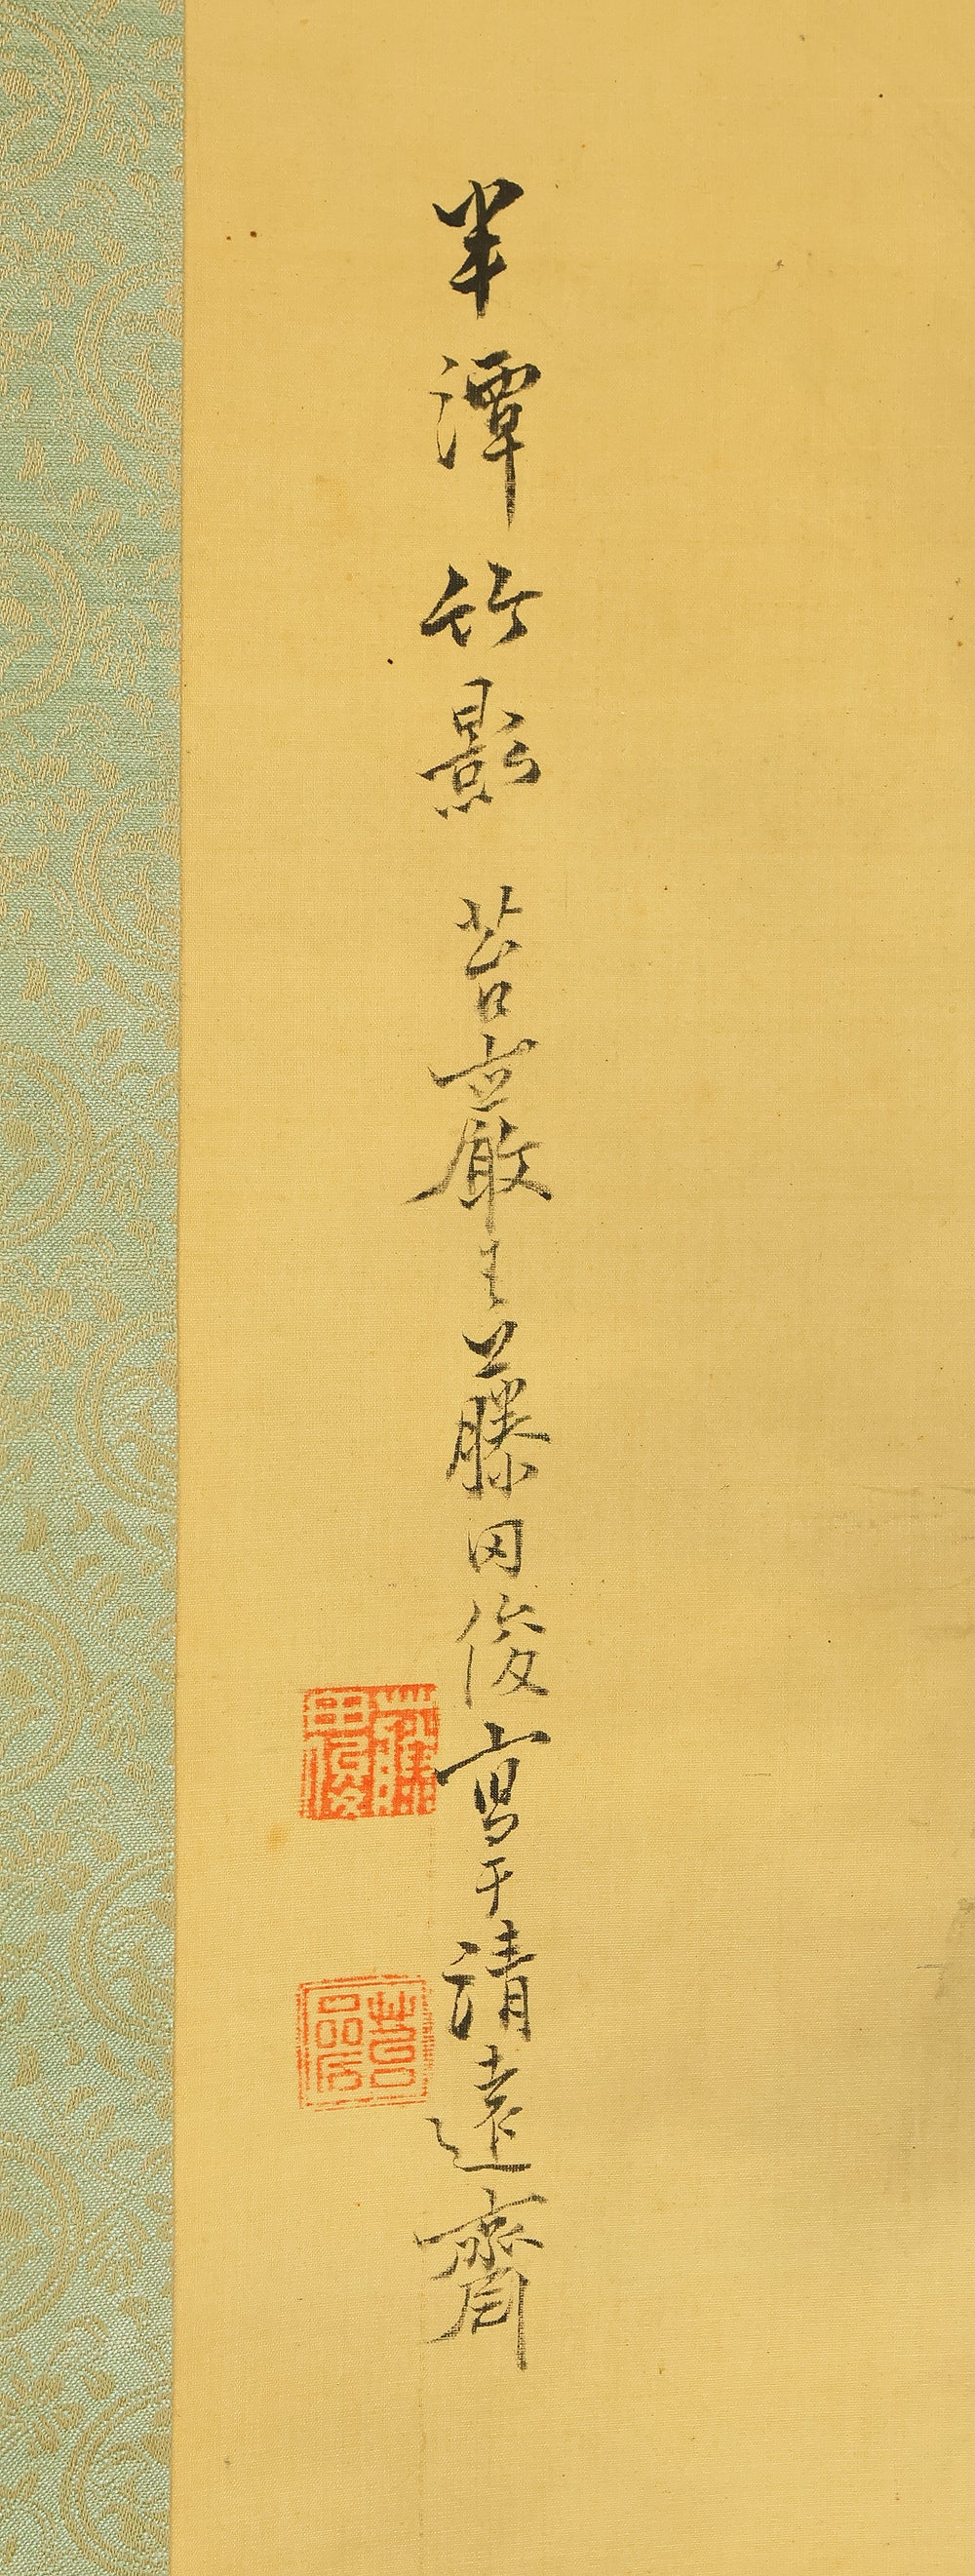 半潭竹影 苔巖生藤田俊寫于清遠齋
藤田俊